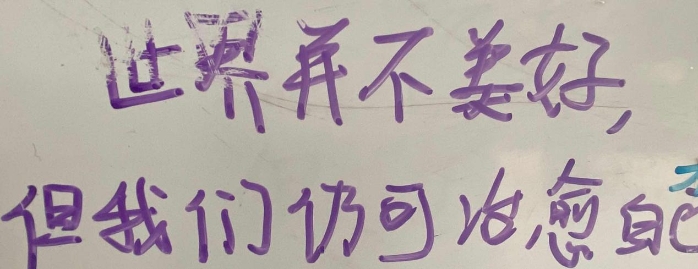 世界并不美好,
但我们仍可治愈自己